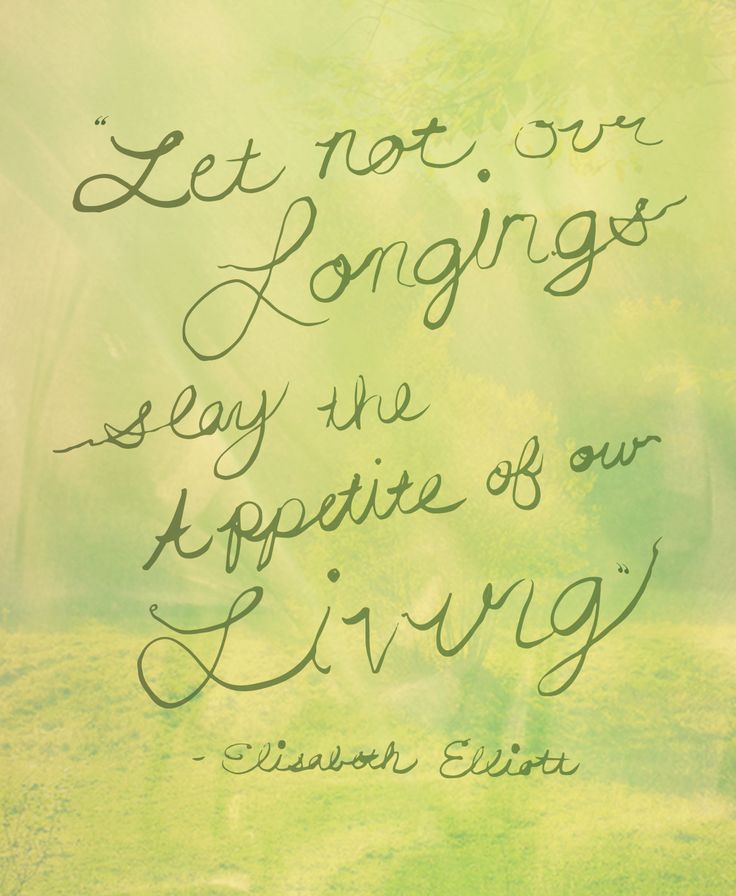 "Let not our
Longings
slay the
Appetite of our
Living"
- Elisabeth Elliott